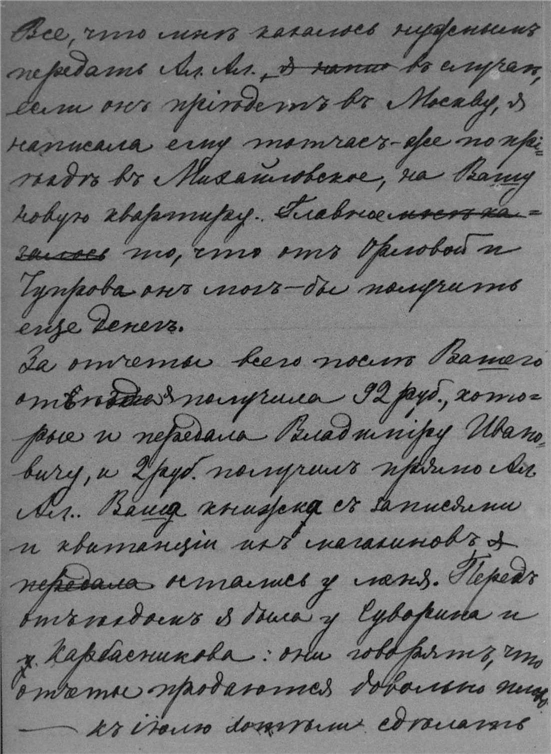 Все, что мнѣ казалось нужнымъ
передать Ал. Ал., я напи въ случаѣ,
если онъ пріѣдетъ въ Москву, я
написала ему тотчасъ-же по прі=
ѣздѣ въ Михайловское, на Вашу
новую квартиру. Главное мнѣ ка=
залось то, что отъ Орловой и
Чупрова онъ могъ-бы получить
еще денегъ.
За отчеты всего послѣ Вашего
отъѣзда я получила 92 руб., кото=
рые и передала Владиміру Ивано=
вичу, и 2 руб. получилъ прямо Ал.
Ал.. Ваша книжка съ записями
и квитанціи изъ магазиновъ я
передала остались у меня. Передъ
отъѣздомъ я была у Суворина и
у Карбасникова: они говорятъ, что
отчеты продаются довольно
— къ іюлю хотѣли сдѣлать